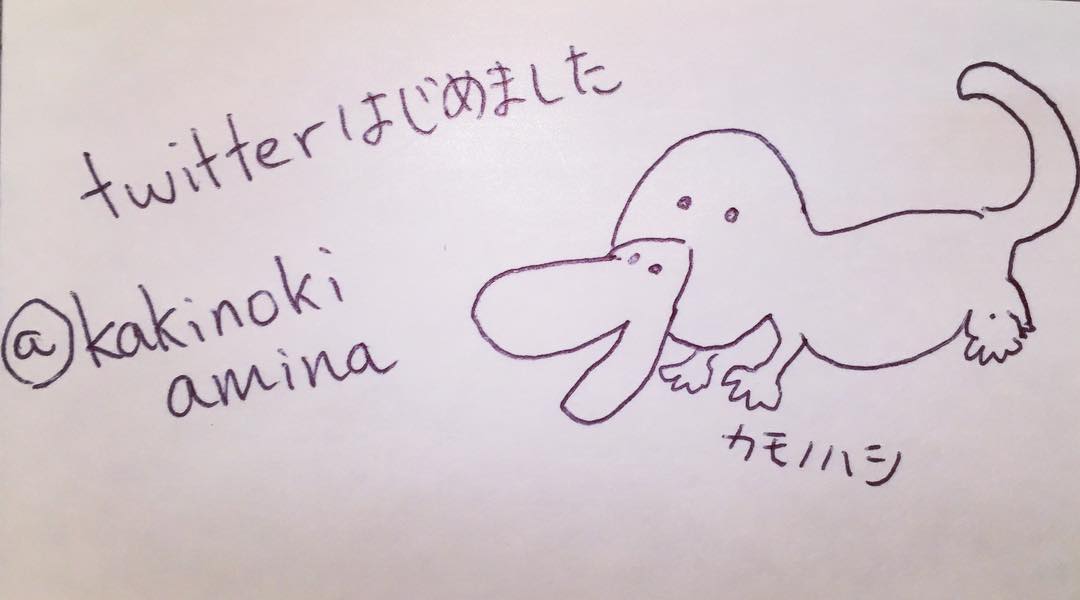 twitterはじめました
@kakinoki
amina
カモノハシ